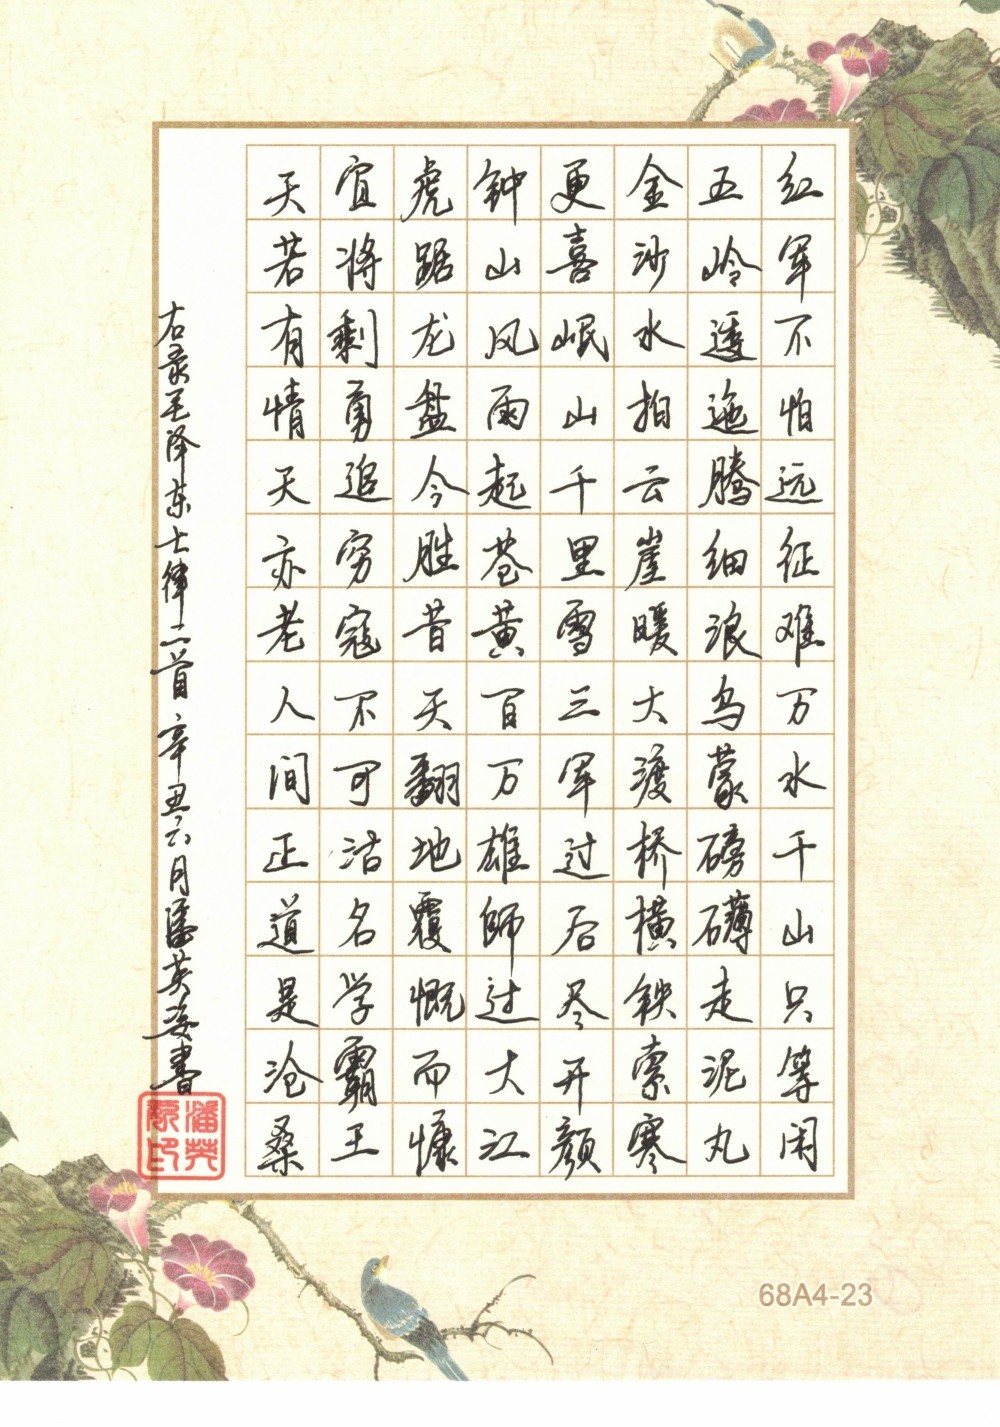 红军不怕远征难万水千山只等闲
五岭逶迤腾细浪乌蒙磅礴走泥丸
金沙水拍云崖暖大渡桥横铁索寒
更喜岷山千里雪三军过后尽开颜
钟山风雨起苍黄百万雄師过大江
虎踞龙盘今胜昔天翻地覆慨而慷
宜将剩勇追穷寇不可沽名学霸王
天若有情天亦老人间正道是沧桑
右录毛泽东七律二首 辛丑六月潘英姿書
潘英姿印
68A4-23